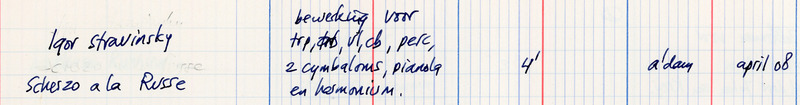 bewerking voor
Igor Stravinsky
trp, trb, vl, cb, perc,
2 cymbaloms, pianola
4'
a'dam
april 08
Scherzo a la Russe
en harmonium.